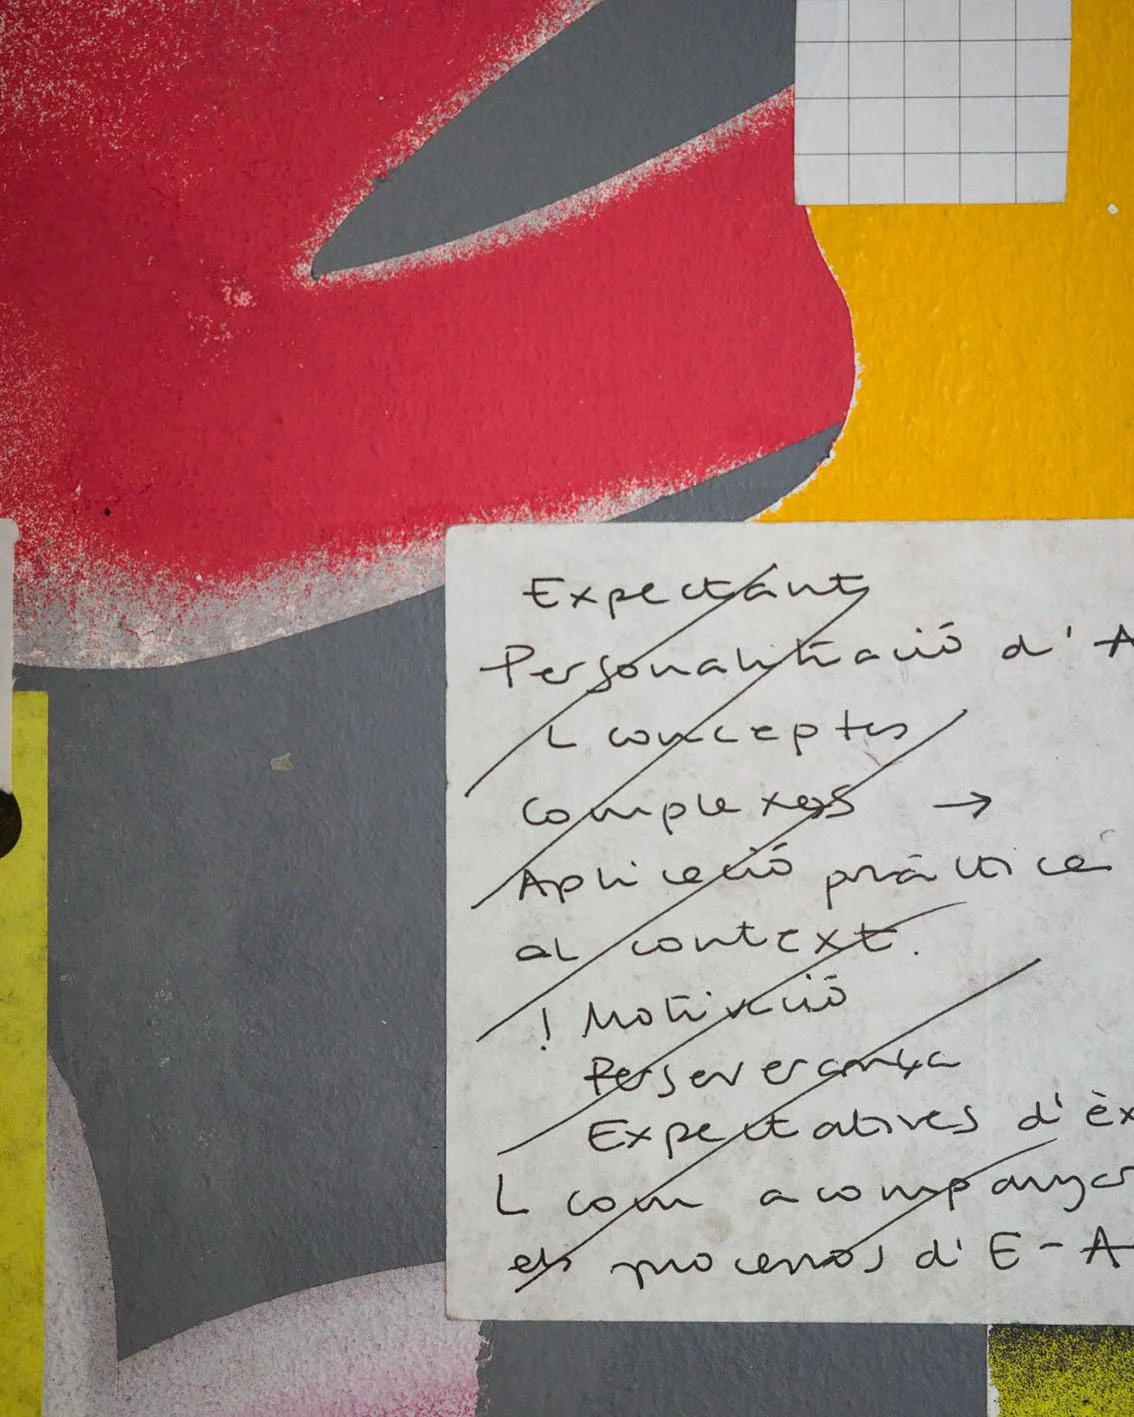 Expectant
Personalització d'A
L conceptes
complexos →
Aplicació pràctica
al context.
! Motivació
Perseverança
Expectatives d'èx
L com acompanyar
els processos d'E-A